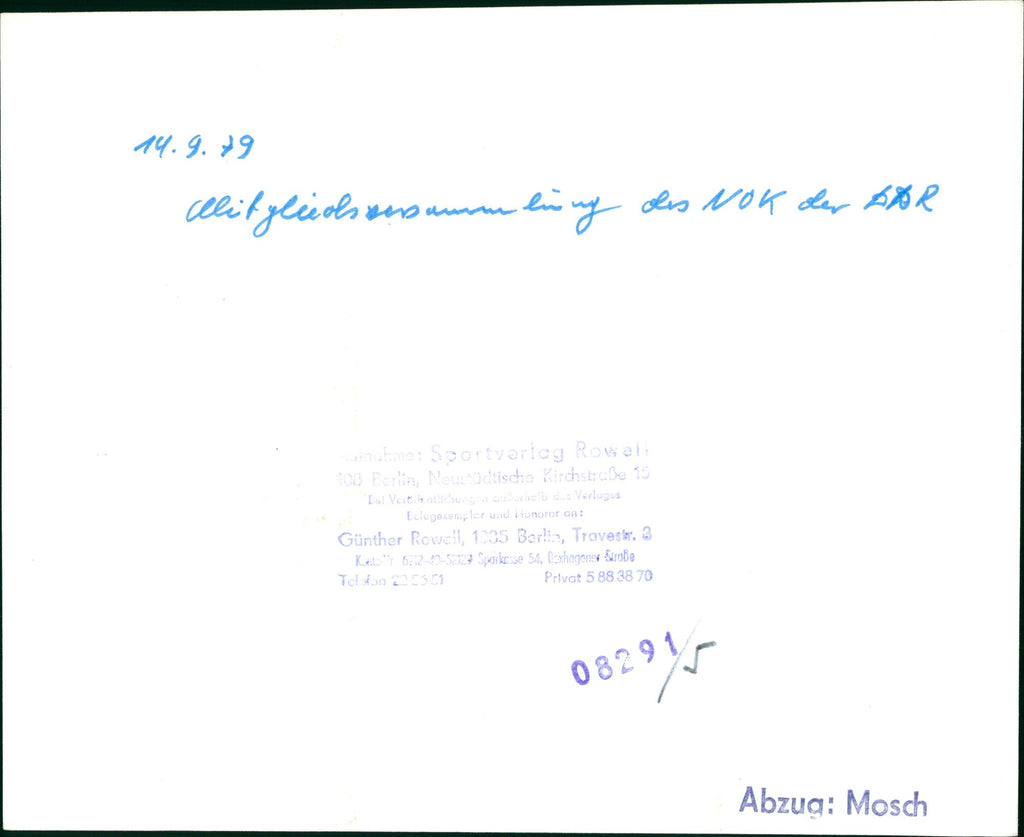 14.9.79
Mitgliedsversammlung des NOK der DDR
Aufnahme: Sportverlag Rowell
108 Berlin, Neustädtische Kirchstraße 15
Bei Veröffentlichungen außerhalb des Verlages
Belegexemplar und Honorar an:
Günther Rowell, 1035 Berlin, Travestr. 3
Konto-Nr. Sparkasse 54, Boxhagener Straße
Telefon Privat 5 88 38 70
08291/5
Abzug: Mosch